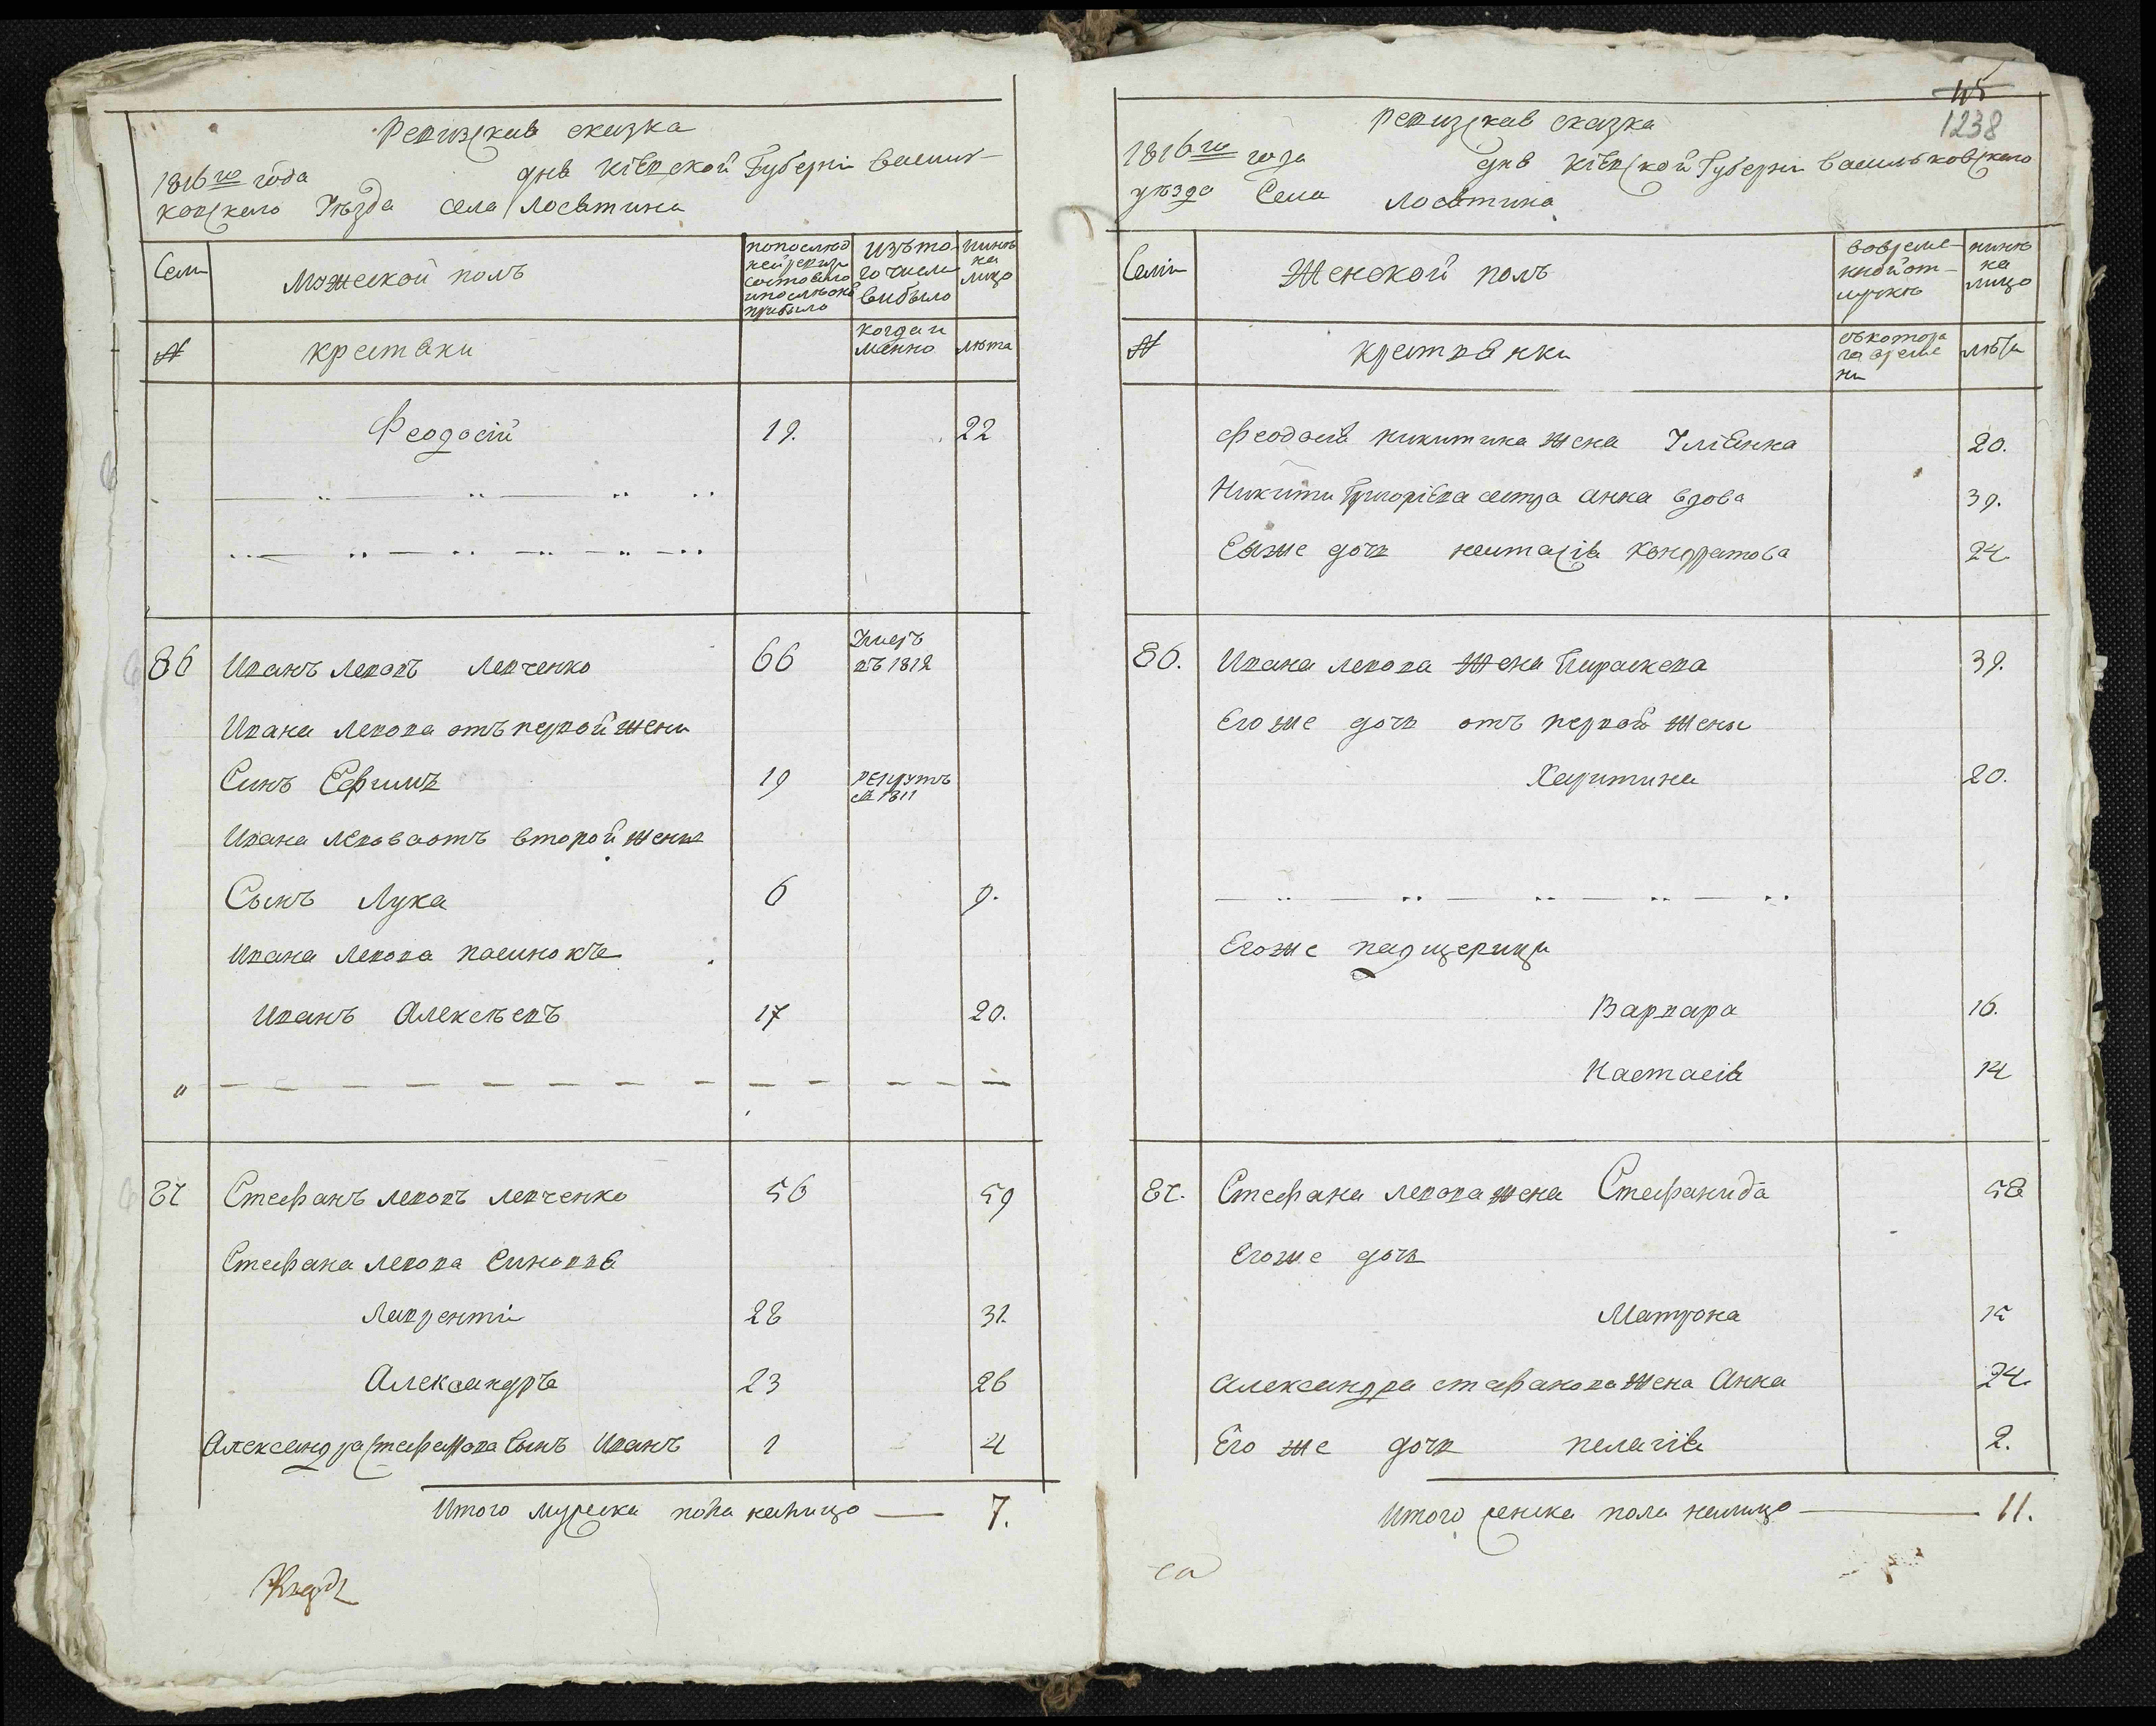 Ревизская сказка
1816го года дня Кіевской Губерніи Василь-
ковскаго Уѣзда села Лосятина
Семи
Мужеской полъ
по последней ревизіи состояло и после оной прибыло
Изъ того числа выбыло
нинѣ на лицо
№
крестяни
когда именно
лѣта
Феодосій 19. 22
86 Иванъ Левовъ Левченко 66 Умеръ въ 1812
Ивана Левова отъ первой жени
Синъ Ефимъ 19 рекрутъ въ 1811
Ивана Левова отъ второй жены
Сынъ Лука 6 9.
Ивана Левова пасинокъ
Иванъ Алексѣевъ 17 20.
87 Стефанъ Левовъ Левченко 56 59
Стефана Левова синовья
Лаврентій 28 31.
Александръ 23 26
Александра Стефанова Сынъ Иванъ 1 4
Итого мужеска пола налицо — 7.
115
1238
Ревизская сказка
1816го года дня Кіевской Губерніи Васильковскаго
уѣзда Села Лосятина
Семіи
Женской полъ
во временной отлучкѣ
нинѣ на лицо
№
крестьянки
съ котораго времени
лѣта
Феодосія Никитина жена Уліянна 20.
Никити Григоріева сестра анна вдова 39.
Еяже дочь настасія Кондратова 24.
86. Ивана Левова Жена Параскева 39.
Его же дочь отъ первой жены
Харитина 20.
Егоже падщерици
Варвара 16.
Настасія 14
87. Стефана Левова жена Стефанида 58
Егоже дочь
Матрона 15
Александра стефанова жена Анна 24.
Его же дочь пелагія 2.
Итого женска пола налицо — 11.
са